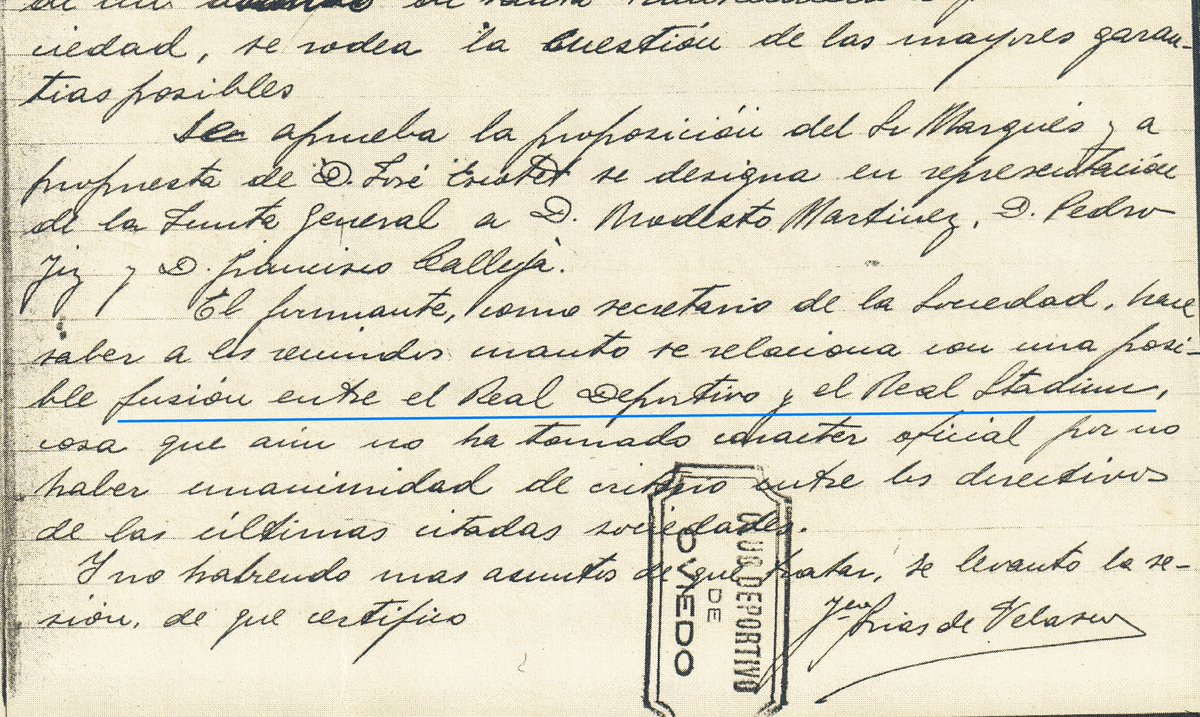 ciedad, se rodea la cuestión de las mayores garan-
tias posibles
Se aprueba la proposición del Sr Marqués y a
propuesta de D. José se designa en representación
de la Junta General a D. Modesto Martinez, D. Pedro
y D. Francisco Calleja.
El firmante, como secretario de la Sociedad, hace
saber a los reunidos cuanto se relaciona con una posi-
ble fusión entre el Real Deportivo y el Real Stadium,
cosa que aún no ha tomado caracter oficial por no
haber unanimidad de criterio entre los directivos
de las últimas citadas sociedades.
Y no habiendo mas asuntos de que tratar, se levanto la se-
sión, de que certifico
Frias de Velasco
CLUB DEPORTIVO
DE
OVIEDO